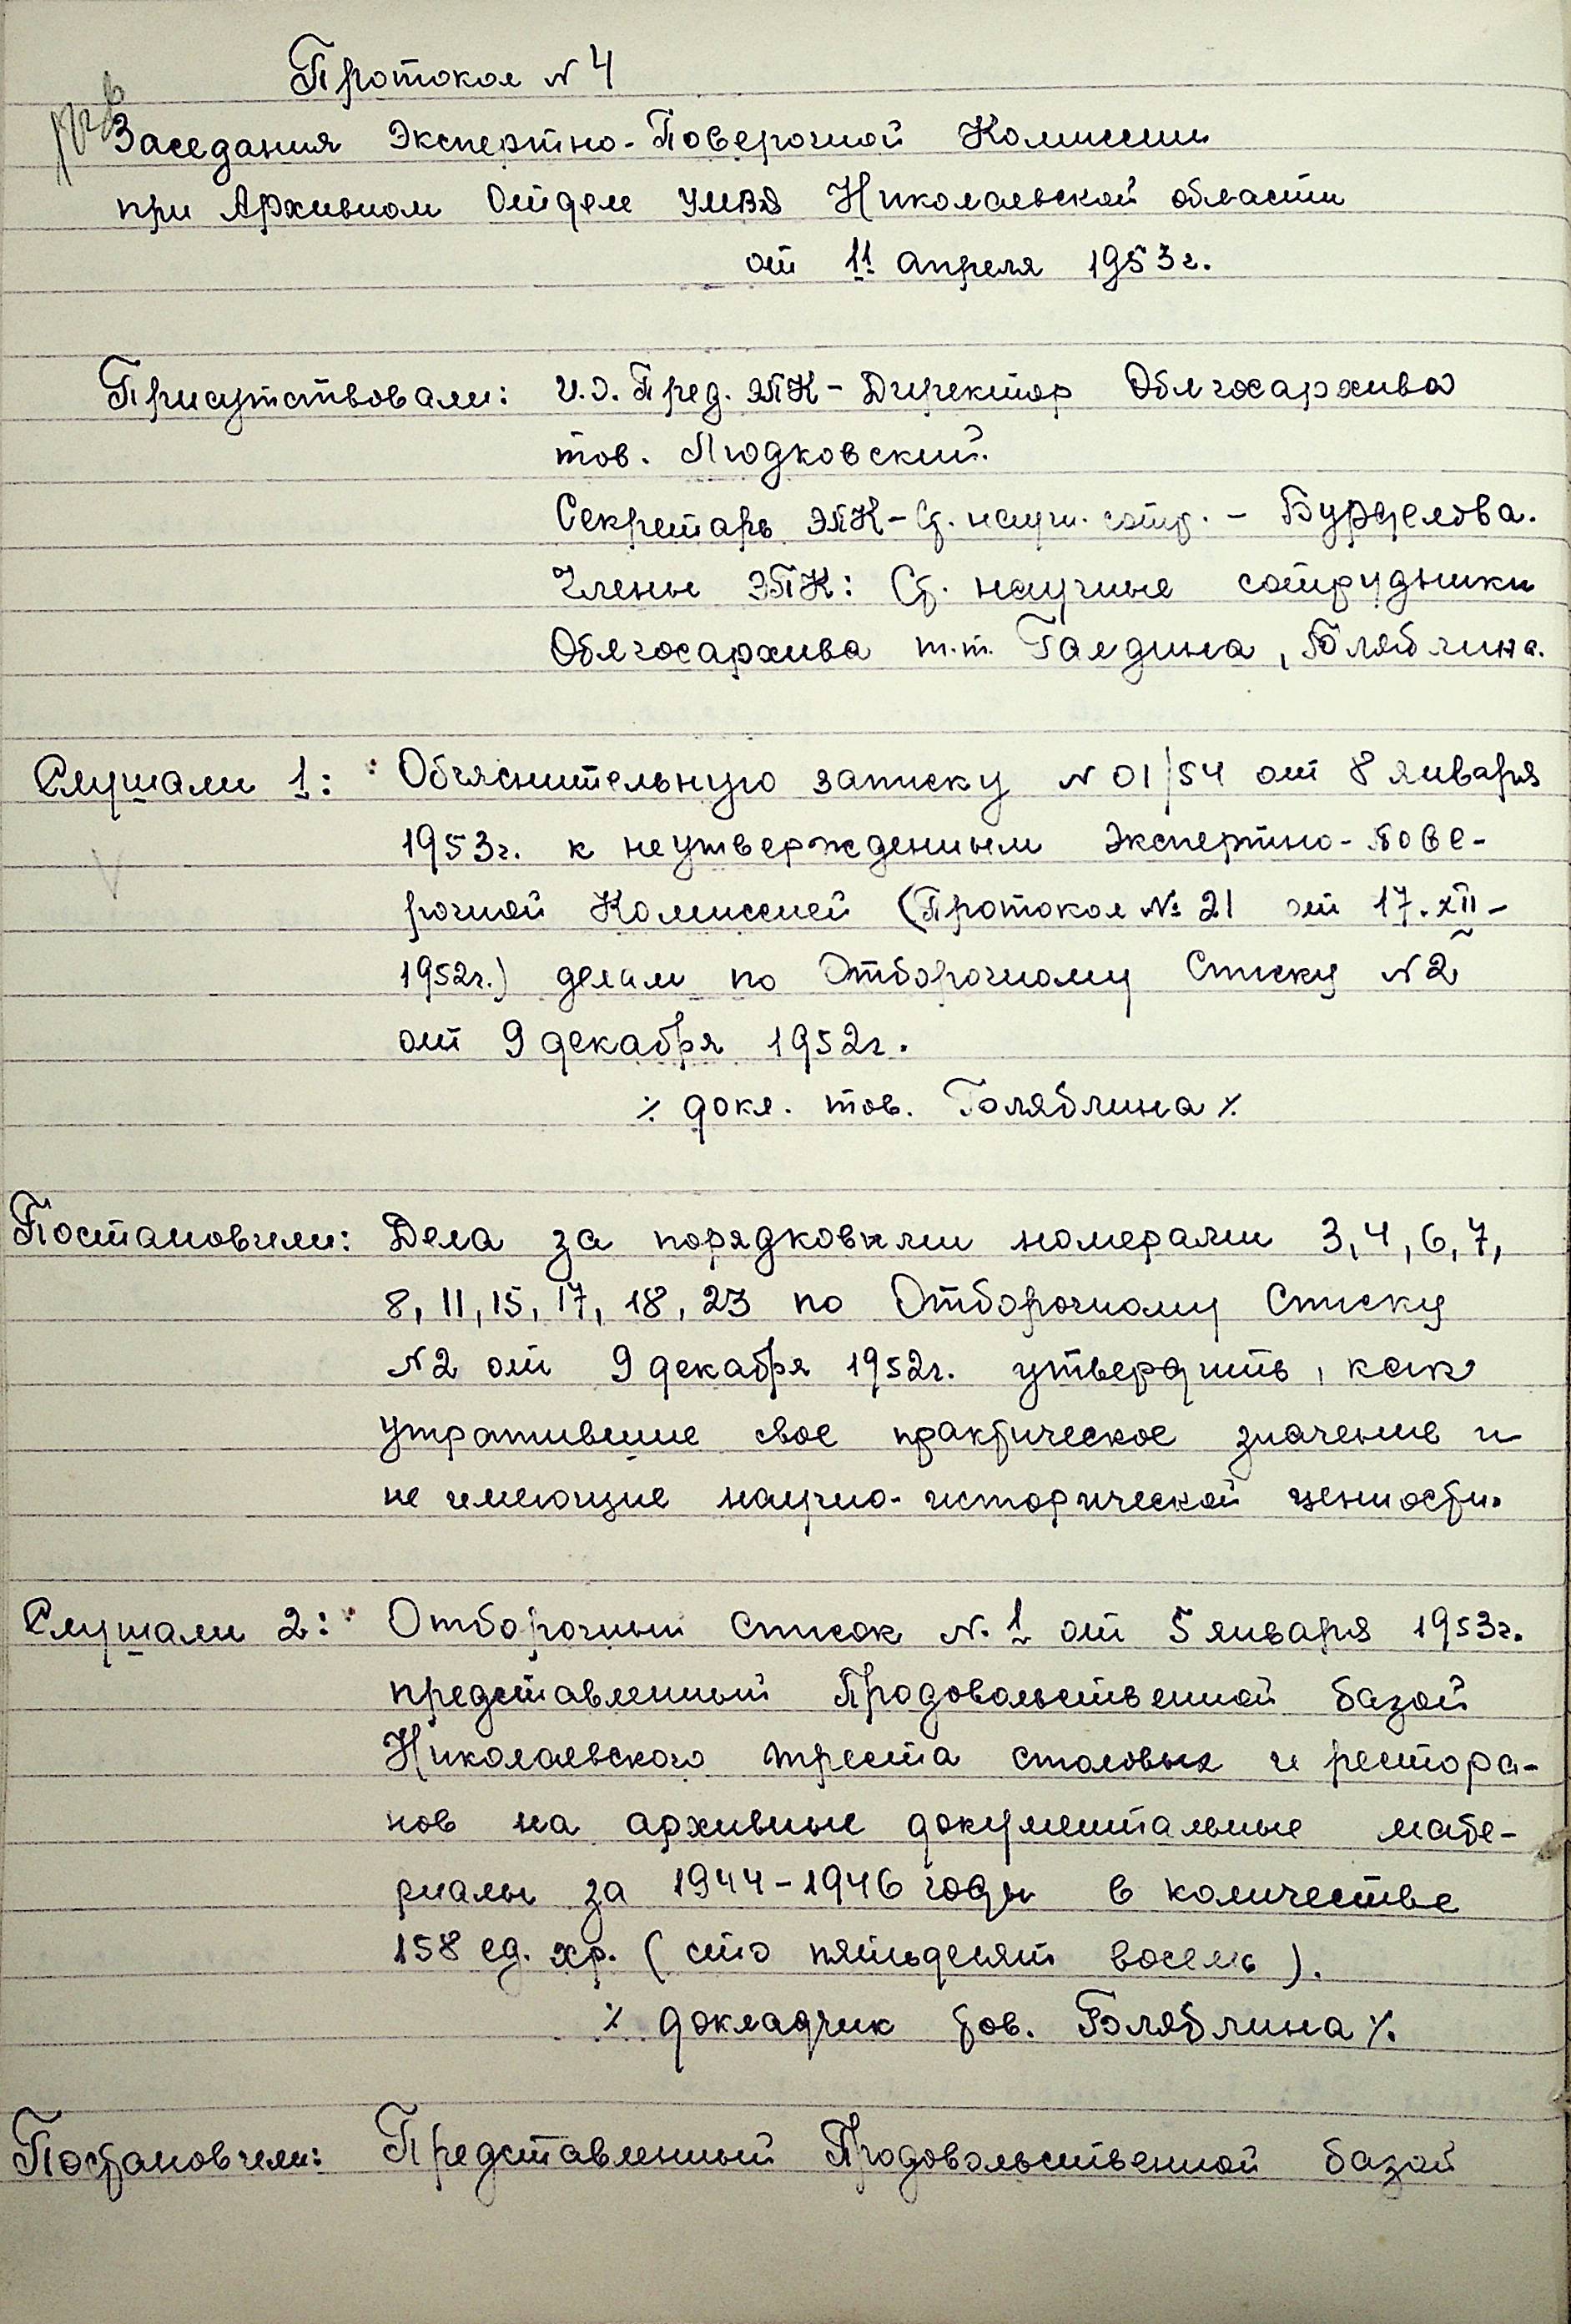 Протокол № 4
Заседания Экспертно-Поверочной Комиссии
при Архивном Отделе УМВД Николаевской области
от 11 апреля 1953г.
Присутствовали: И.О. Пред. ЭПК - Директор Облгосархива
тов. Людковский.
Секретарь ЭПК - Ст. научн. сотр. -
Члены ЭПК: Ст. научные сотрудники
Облгосархива т.т. Галдина, Голяблина.
Слушали 1: Объяснительную записку № 01/54 от 8 января
1953г. к неутвержденным Экспертно-Пове-
рочной Комиссией (Протокол № 21 от 17.XII-
1952г.) делам по Отборочному Списку № 2
от 9 декабря 1952г.
٪ докл. тов. Голяблина ٪
Постановили: Дела за порядковыми номерами 3, 4, 6, 7,
8, 11, 15, 17, 18, 23 по Отборочному Списку
№ 2 от 9 декабря 1952г. утвердить, как
утратившие свое практическое значение и
не имеющие научно-исторической ценности.
Слушали 2: Отборочный Список № 1 от 5 января 1953г.
представленный Продовольственной базой
Николаевского треста столовых и рестора-
нов на архивные документальные мате-
риалы за 1944-1946 годы в количестве
158 ед. хр. (сто пятьдесят восемь).
٪ докладчик тов. Голяблина ٪.
Постановили: Представленный Продовольственной базой